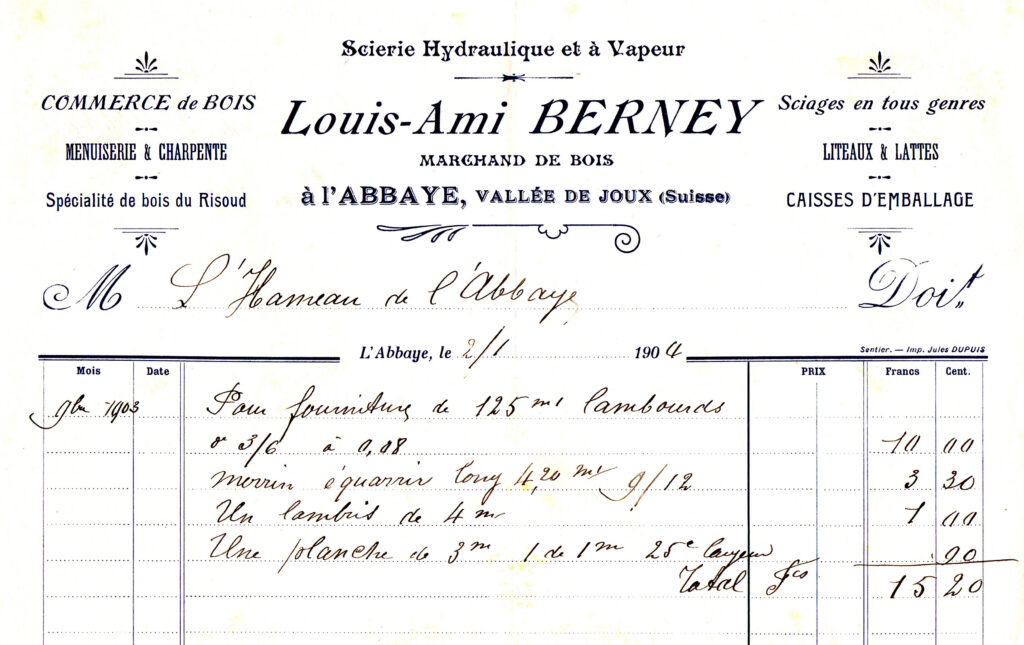 Scierie Hydraulique et à Vapeur
COMMERCE de BOIS
MENUISERIE & CHARPENTE
Spécialité de bois du Risoud
Louis-Ami BERNEY
MARCHAND DE BOIS
à l'ABBAYE, VALLÉE DE JOUX (Suisse)
Sciages en tous genres
LITEAUX & LATTES
CAISSES D'EMBALLAGE
M L'Hameau de l'Abbaye Doit
L'Abbaye, le 2/1 1904
Sentier. — Imp. Jules DUPUIS
Mois Date PRIX Francs Cent.
9bre 1903 Pour fourniture de 125 mts lambourds
3/6 à 0,08 10 00
équarrir long 4,20 mts 9/12 3 30
Un lambris de 4 m 1 00
Une planche de 3m 1 de 1m 25c largeur 90
Total Fcs 15 20